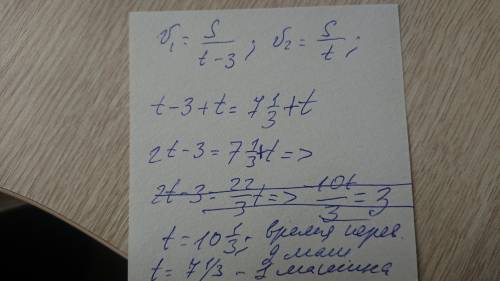 v₁ = S/(t-3); v₂ = S/t;
t-3+t = 7 1/3 + t
2t-3 = 7 1/3 + t =>
2t-3 = 22/3 t => 10t/3 = 3
t = 10 1/3 - время перев.
маш
t = 7 1/3 - 2 машинка